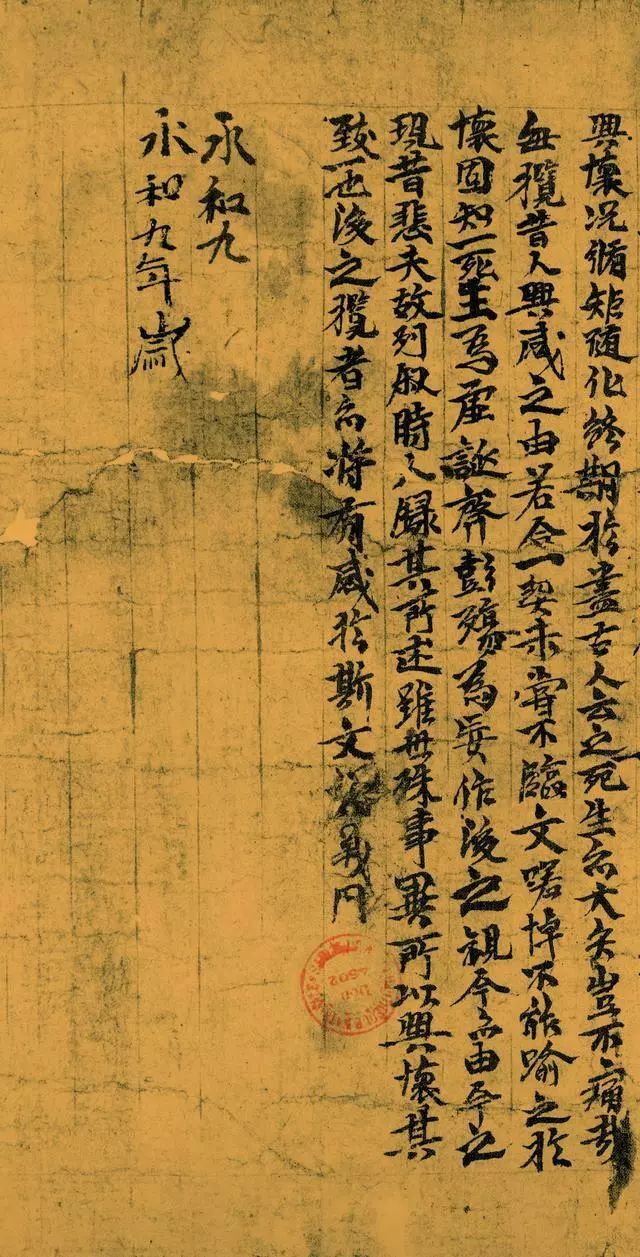 興懷况脩矩随化終期於盡古人云之死生亦大矣豈不痛哉
每攬昔人興感之由若合一契未嘗不臨文嗟悼不能喻之於
懷固知一死生為虛誕齊彭殤為妄作後之視今亦由今之
視昔悲夫故列叙時人録其所述雖世殊事異所以興懷其
致一也後之攬者亦将有感於斯文
永和九
永和九年歲